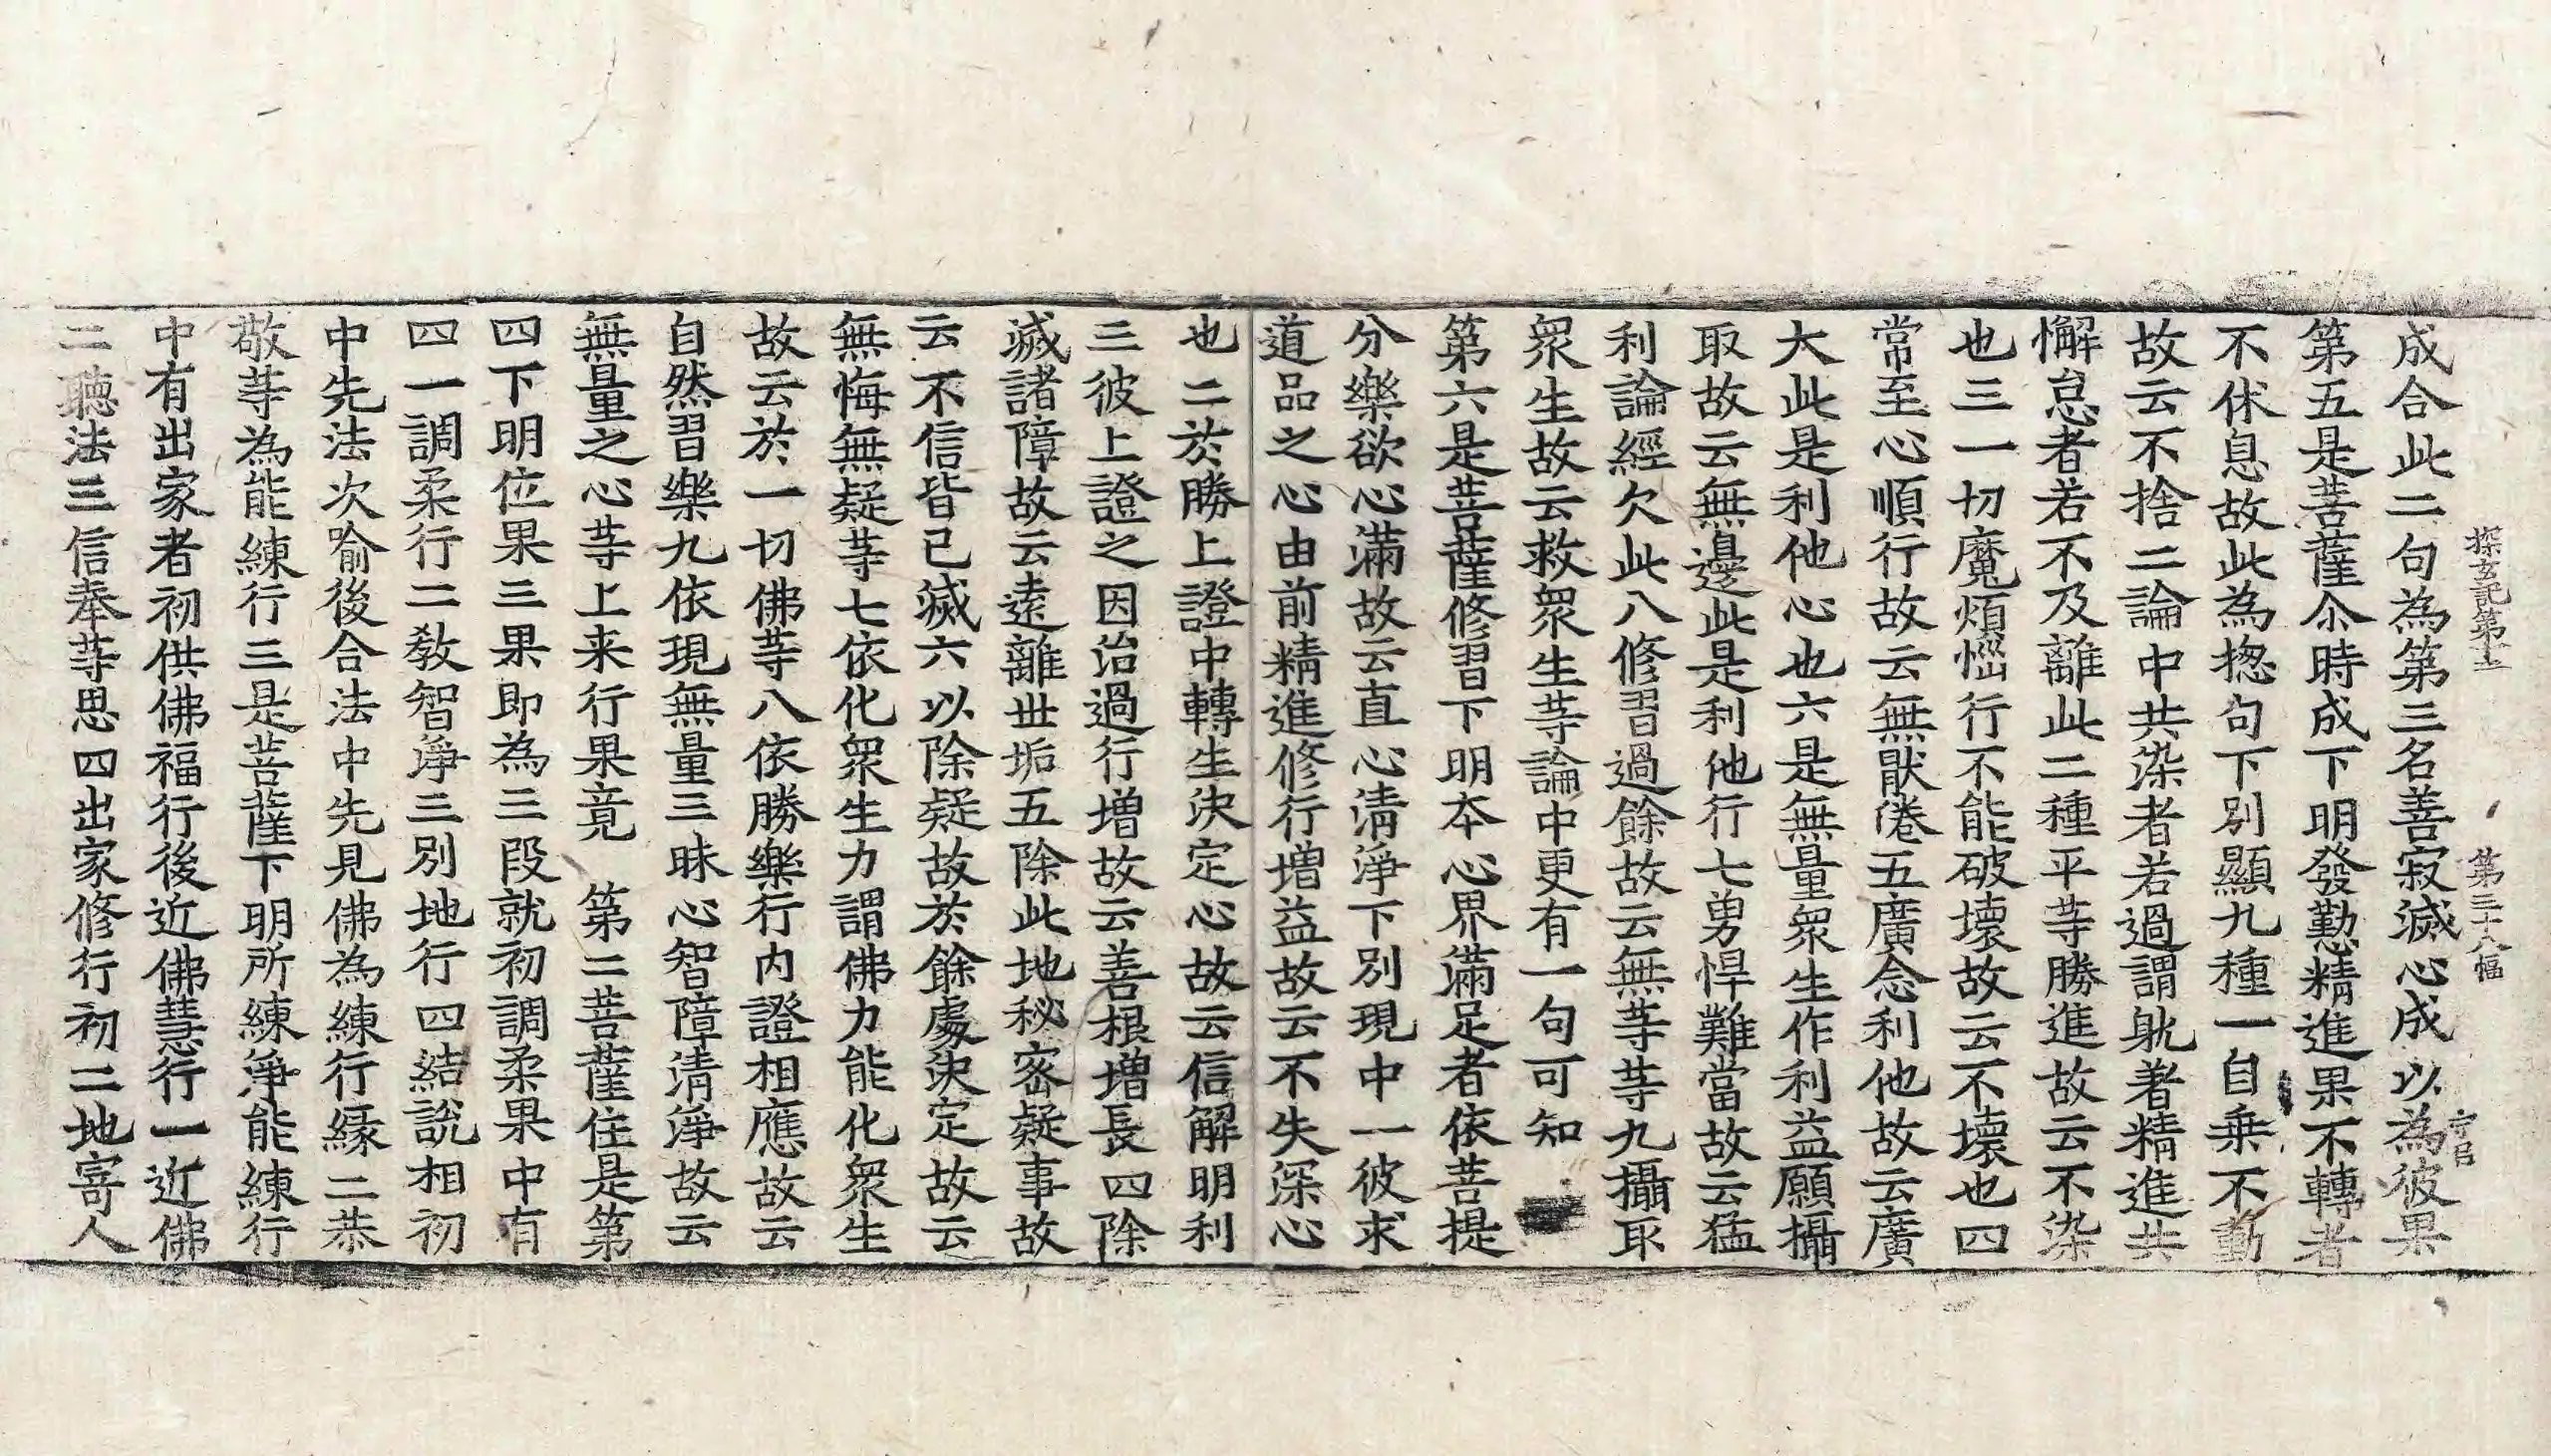 探玄記第十三 第三十八幅 守臣
成合此二句為第三名善寂滅心成以為彼果
第五是菩薩尒時成下明發勤精進果不轉者
不休息故此為揔句下別顯九種一自乗不動
故云不捨二論中共染者若過謂躭著精進共
懈怠者若不及離此二種平等勝進故云不染
也三一切魔煩惱行不能破壞故云不壞也四
常至心順行故云無猒倦五廣念利他故云廣
大此是利他心也六是無量衆生作利益願攝
取故云無邊此是利他行七勇悍難當故云猛
利論經欠此八修習過餘故云無等等九攝取
衆生故云救衆生等論中更有一句可知
第六是菩薩修習下明本心界滿足者依菩提
分樂欲心滿故云直心清淨下別現中一彼求
道品之心由前精進修行増益故云不失深心
也二於勝上證中轉生決定心故云信解明利
三彼上證之因治過行増故云善根増長四除
滅諸障故云遠離世垢五除此地秘密疑事故
云不信皆已滅六以除疑故於餘處決定故云
無悔無疑等七依化衆生力謂佛力能化衆生
故云於一切佛等八依勝樂行内證相應故云
自然習樂九依現無量三昧心智障清淨故云
無量之心等上来行果竟　第二菩薩住是第
四下明位果三果即為三段就初調柔果中有
四一調柔行二教智淨三別地行四結說相初
中先法次喻後合法中先見佛為練行縁二恭
敬等為能練行三是菩薩下明所練淨能練行
中有出家者初供佛福行後近佛慧行一近佛
二聽法三信奉等思四出家修行初二地寄人